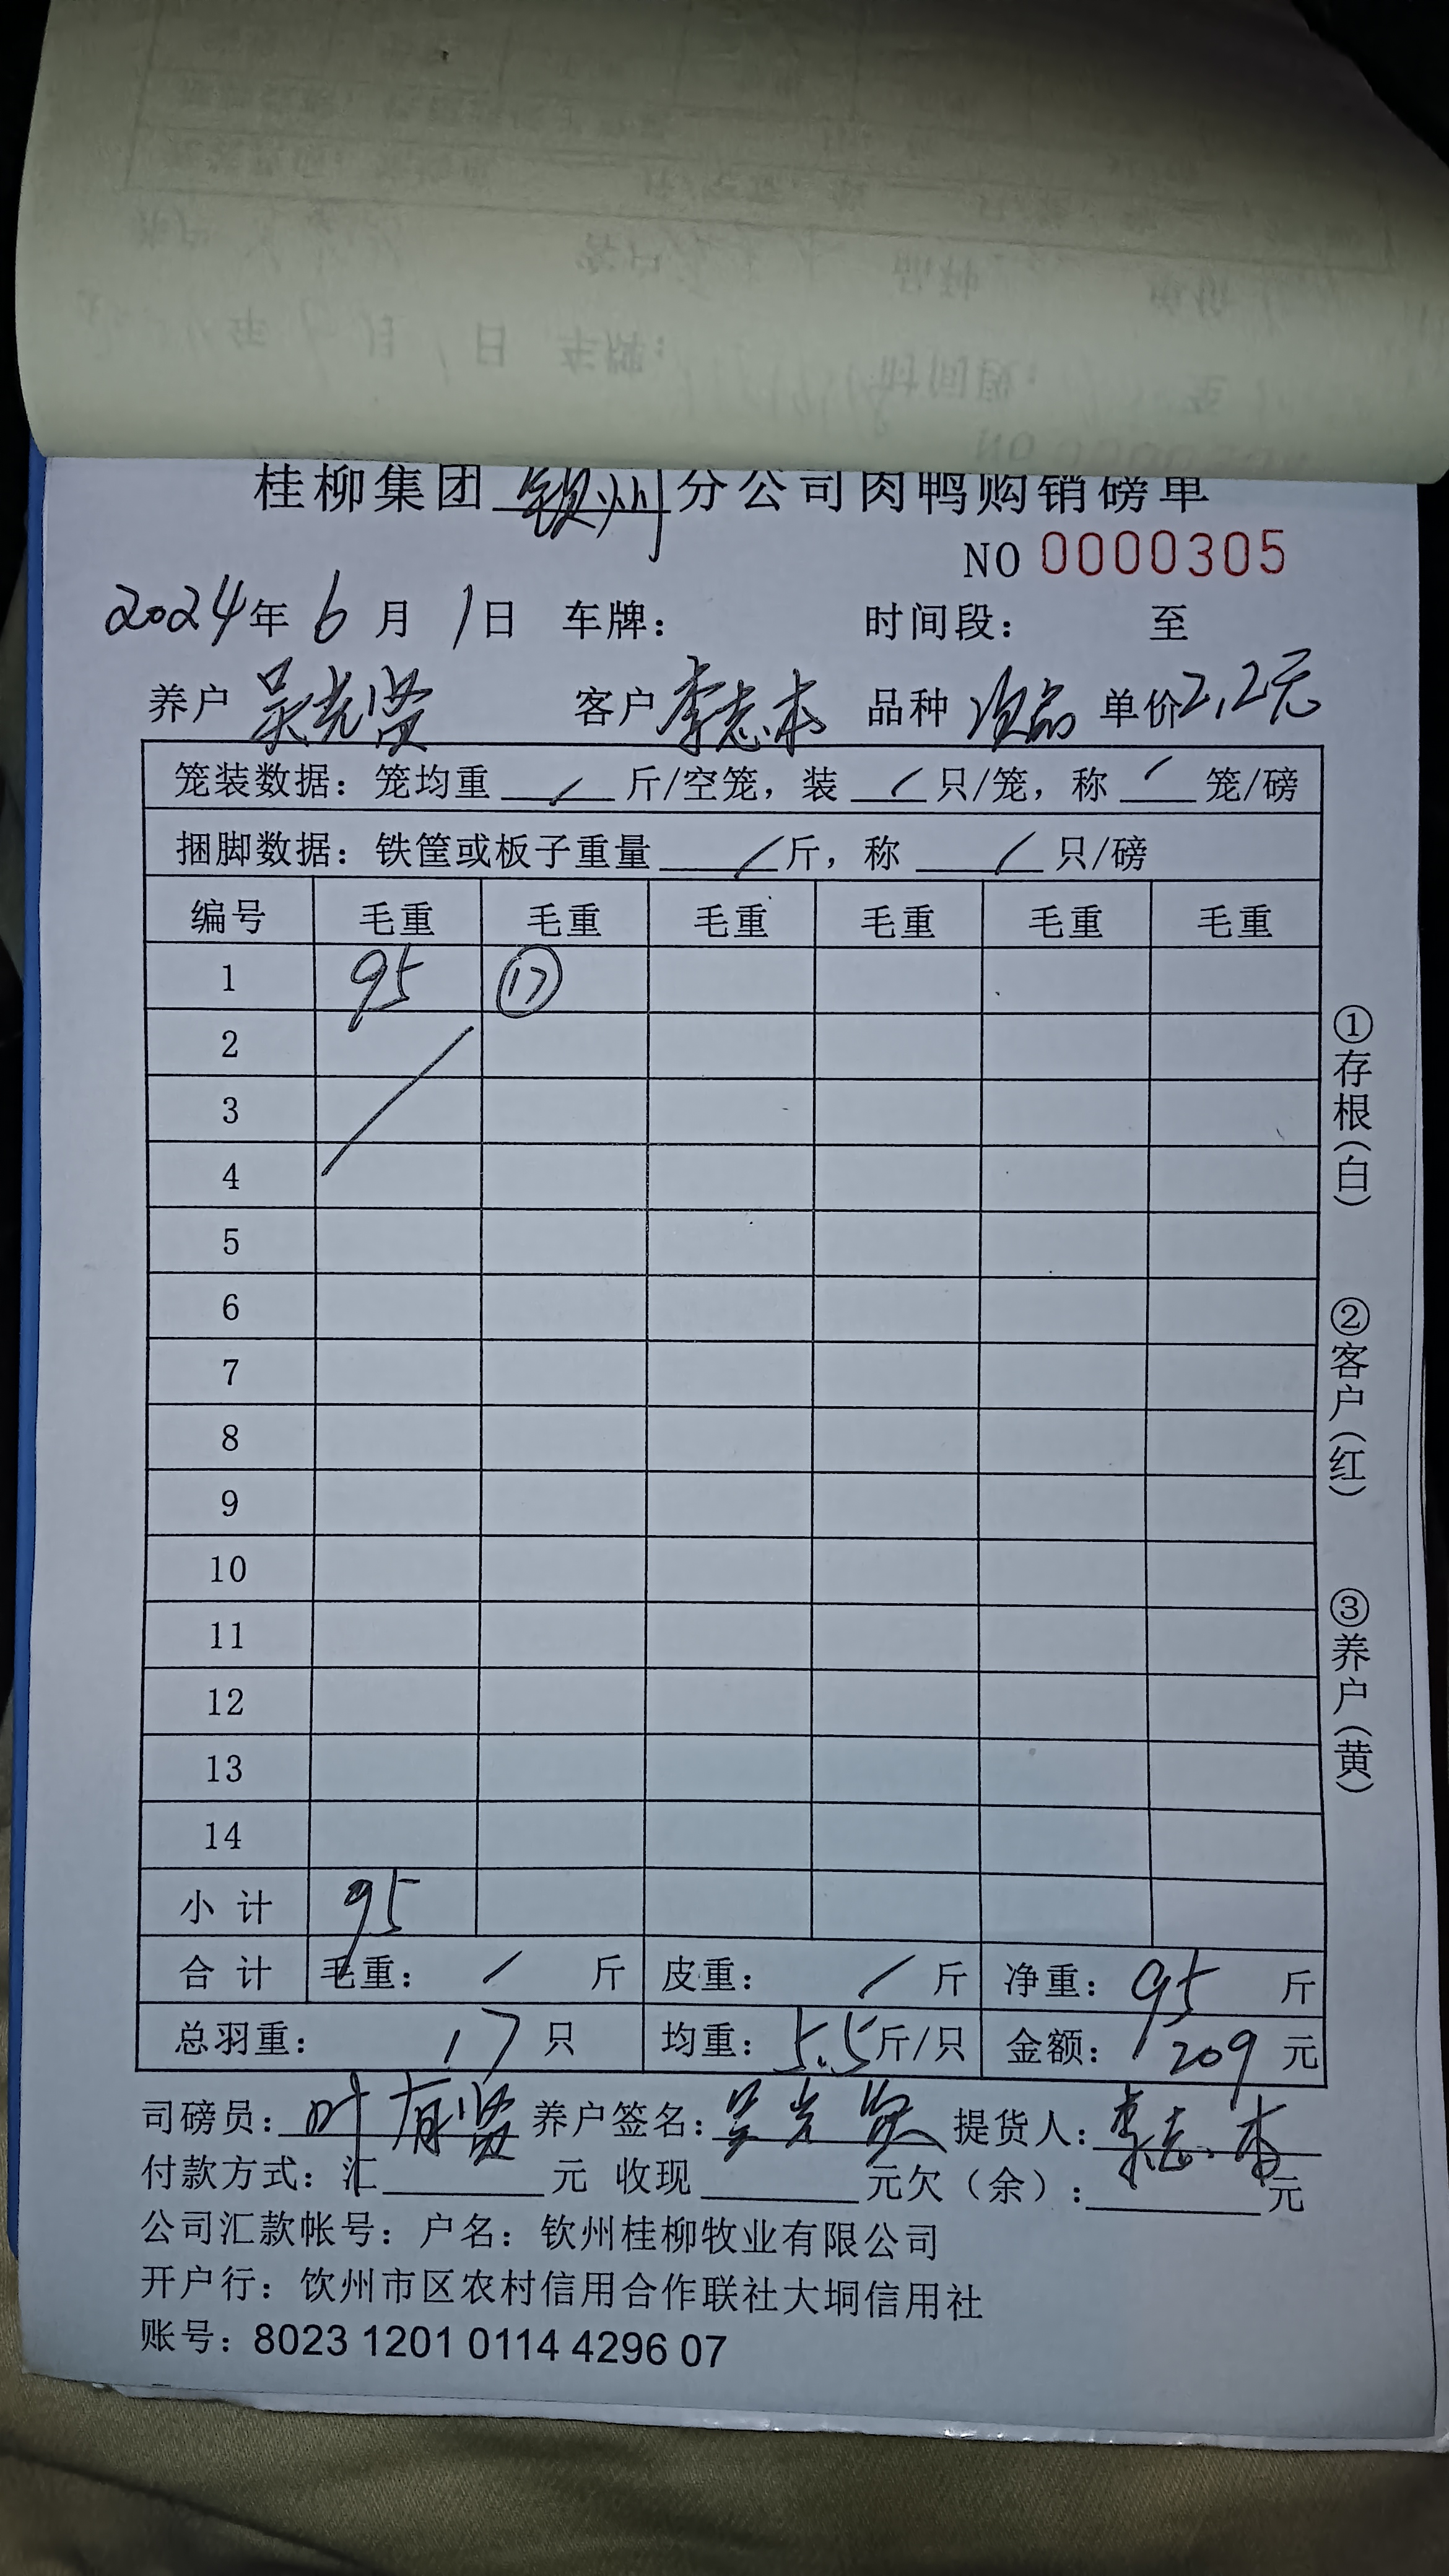 桂柳集团钦州分公司肉鸭购销磅单
NO 0000305
2024年6月1日 车牌： 时间段： 至
养户 吴光贤 客户 李志本 品种 次品 单价2.2元
笼装数据：笼均重 / 斤/空笼，装 / 只/笼，称 / 笼/磅
捆脚数据：铁筐或板子重量 / 斤，称 / 只/磅
编号 毛重 毛重 毛重 毛重 毛重 毛重
1 95 ⑰
2
3
4
5
6
7
8
9
10
11
12
13
14
小计 95
合计 毛重： / 斤 皮重： / 斤 净重：95 斤
总羽重： 17 只 均重：5.5斤/只 金额：209 元
司磅员：叶有贤 养户签名：吴光贤 提货人：李志本
付款方式：汇 元 收现 元欠（余）： 元
公司汇款帐号：户名：钦州桂柳牧业有限公司
开户行：钦州市区农村信用合作联社大垌信用社
账号：8023 1201 0114 4296 07
①存根（白）
②客户（红）
③养户（黄）